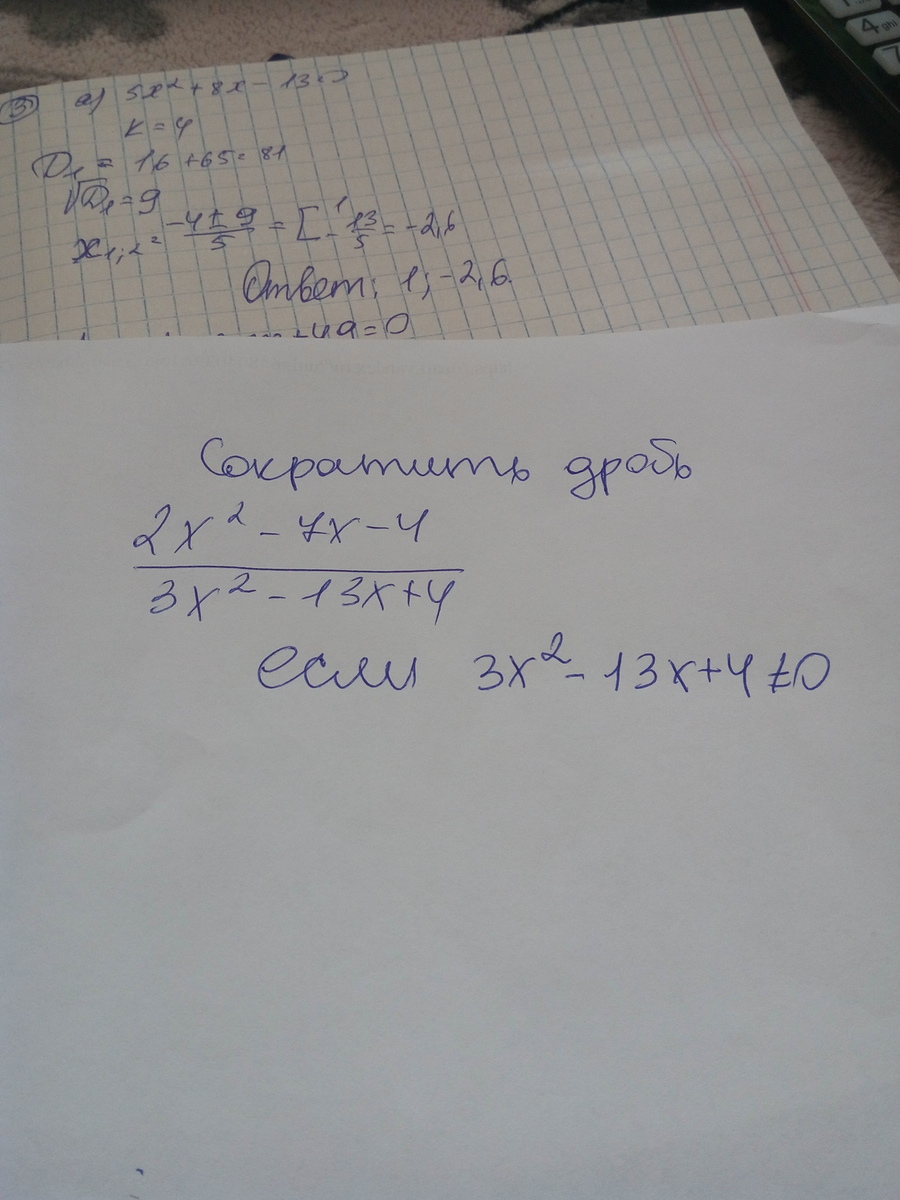 3 a) 5x² + 8x - 13 = 0
k = 4
D₁ = 16 + 65 = 81
√D₁ = 9
x₁;₂ = (-4 ± 9)/5 = [ 1
-13/5 = -2,6
Ответ: 1; -2,6.
+49=0
Сократить дробь
2x² - 7x - 4
3x² - 13x + 4
если 3x² - 13x + 4 ≠ 0